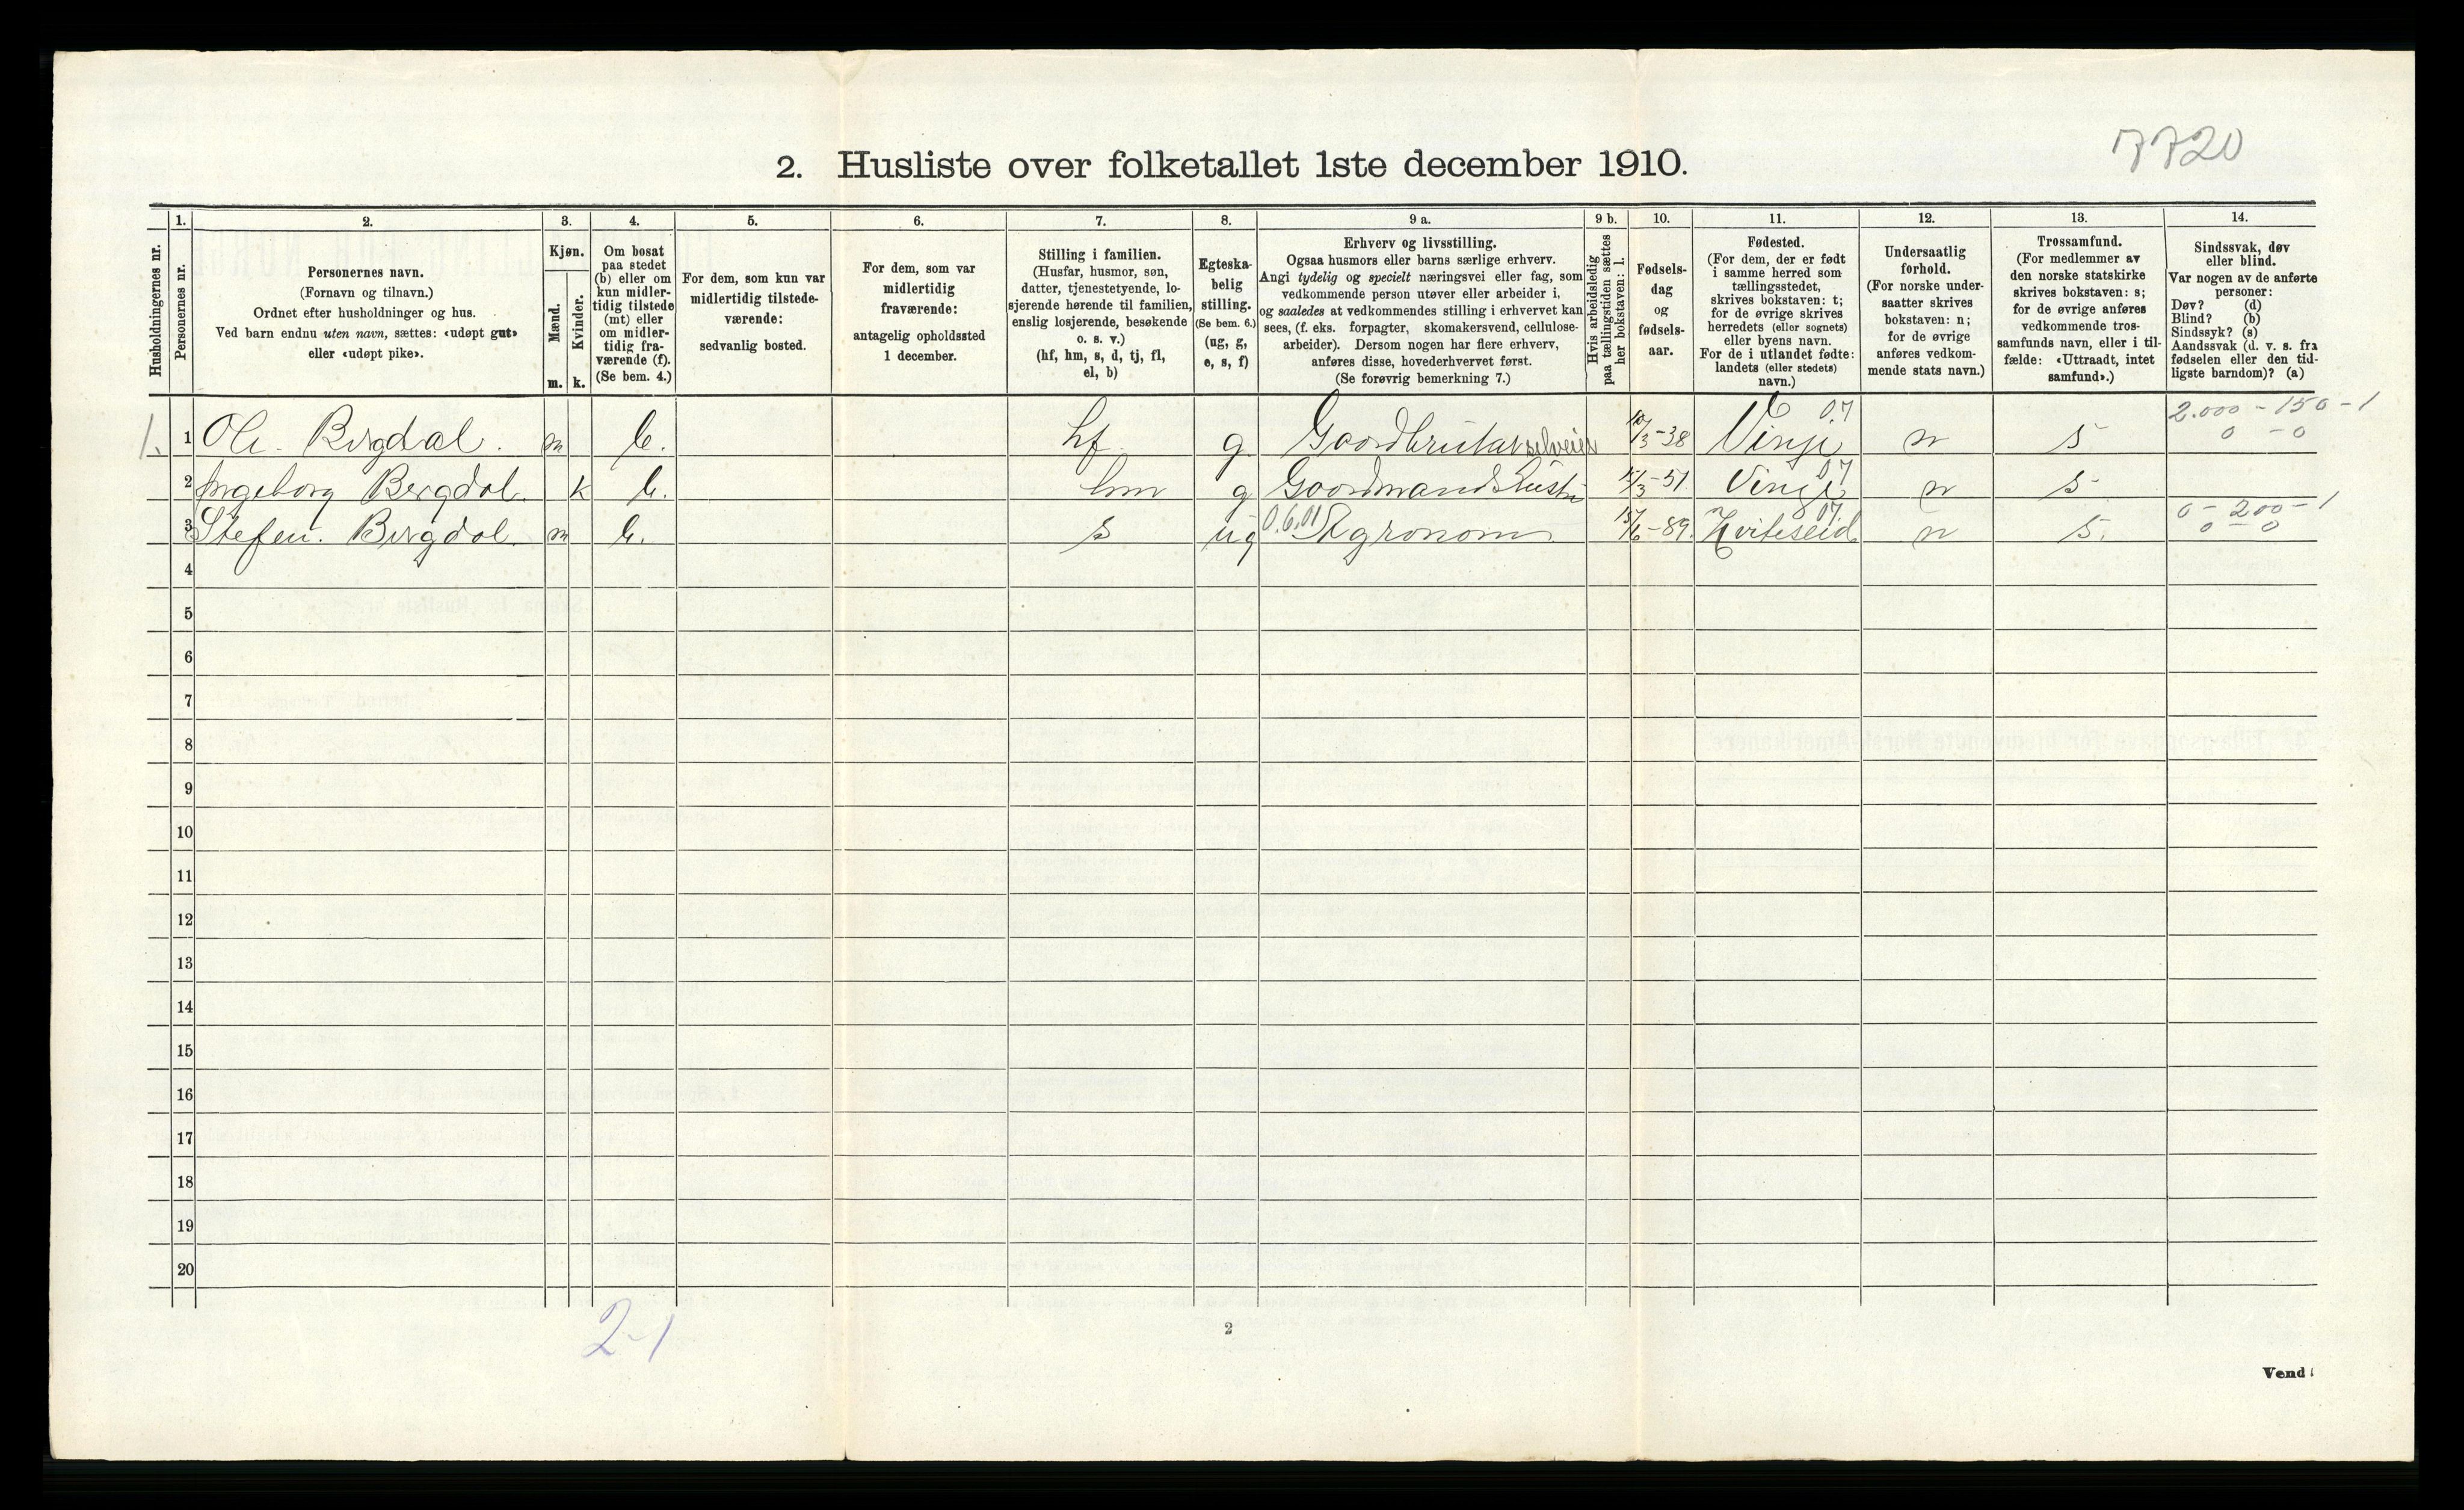 7720
2. Husliste over folketallet 1ste december 1910.
Husholdningernes nr.
1. Personernes nr.
2. Personernes navn. (Fornavn og tilnavn.) Ordnet efter husholdninger og hus. Ved barn endnu uten navn, sættes: «udøpt gut» eller «udøpt pike».
3. Kjøn. Mænd. m. Kvinder. k.
4. Om bosat paa stedet (b) eller om kun midler-tidig tilstede (mt) eller om midler-tidig fra-værende (f). (Se bem. 4.)
5. For dem, som kun var midlertidig tilstede-værende: sedvanlig bosted.
6. For dem, som var midlertidig fraværende: antagelig opholdssted 1 december.
7. Stilling i familien. (Husfar, husmor, søn, datter, tjenestetyende, lo-sjerende hørende til familien, enslig losjerende, besøkende o. s. v.) (hf, hm, s, d, tj, fl, el, b)
8. Egteska-belig stilling. (Se bem. 6.) (ug, g, e, s, f)
9 a. Erhverv og livsstilling. Ogsaa husmors eller barns særlige erhverv. Angi tydelig og specielt næringsvei eller fag, som vedkommende person utøver eller arbeider i, og saaledes at vedkommendes stilling i erhvervet kan sees, (f. eks. forpagter, skomakersvend, cellulose-arbeider). Dersom nogen har flere erhverv, anføres disse, hovederhvervet først. (Se forøvrig bemerkning 7.)
9 b. Hvis arbeidsledig paa tællingstiden sættes her bokstaven: l.
10. Fødsels-dag og fødsels-aar.
11. Fødested. (For dem, der er født i samme herred som tællingsstedet, skrives bokstaven: t; for de øvrige skrives herredets (eller sognets) eller byens navn. For de i utlandet fødte: landets (eller stedets) navn.)
12. Undersaatlig forhold. (For norske under-saatter skrives bokstaven: n; for de øvrige anføres vedkom-mende stats navn.)
13. Trossamfund. (For medlemmer av den norske statskirke skrives bokstaven: s; for de øvrige anføres vedkommende tros-samfunds navn, eller i til-fælde: «Uttraadt, intet samfund».)
14. Sindssvak, døv eller blind. Var nogen av de anførte personer: Døv? (d) Blind? (b) Sindssyk? (s) Aandssvak (d. v. s. fra fødselen eller den tid-ligste barndom)? (a)
1. 1 Ole Bergdal. m b. hf g Gaardbruker selveier 10/3-38 Vinje 07 n s 2.000 - 150 - 1 0 - 0
2 Ingeborg Bergdal. k b. hm g Gaardmands Hustru 15/3-51 Vinje 07 n s
3 Stefen Bergdal. m b. s ug 0.6.01 Agronom 15/6-89. Kviteseid 07 n s. 0 - 200 - 1 0 - 0
4
5
6
7
8
9
10
11
12
13
14
15
16
17
18
19
20
2-1
2
Vend!